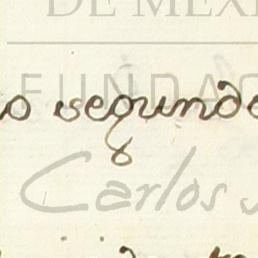 DE MÉXI
FUNDAC
o segunde
Carlos S